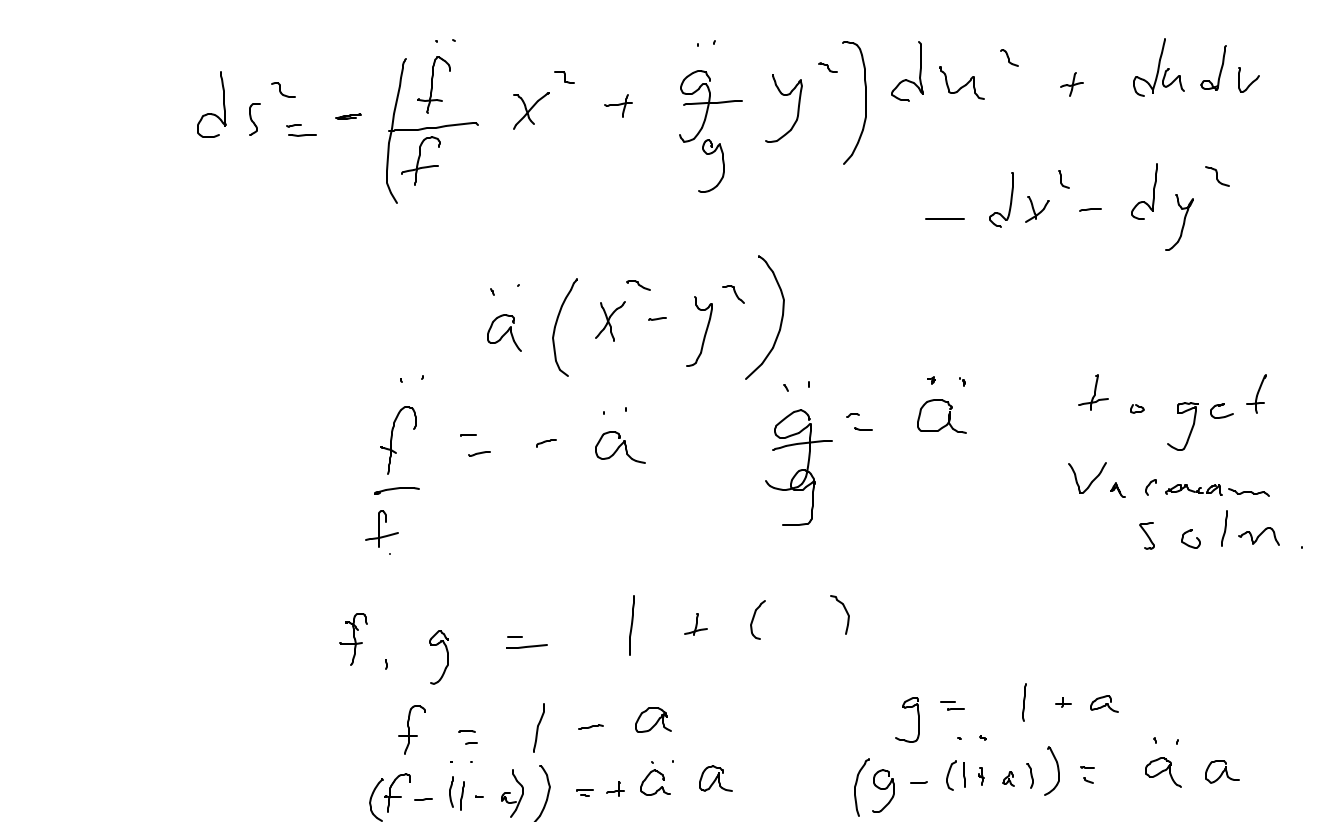 ds² = - (f̈/f x² + g̈/g y²) du² + du dv
- dx² - dy²
ä (x² - y²)
f̈/f = - ä g̈/g = ä to get
Vacuum
soln.
f, g = 1 + ( )
f = 1 - a g = 1 + a
(f - (1 - a))¨ = + ä a (g - (1 + a))¨ = ä a